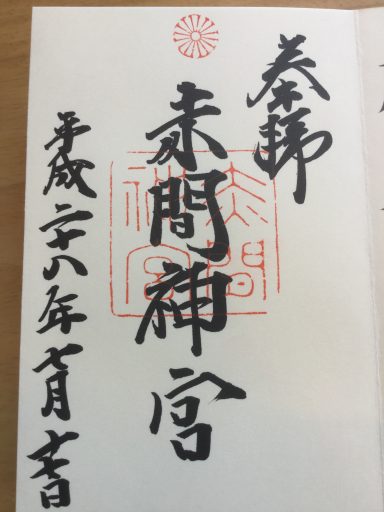 奉拝
赤間神宮
赤間
神宮
平成二十八年七月十七日